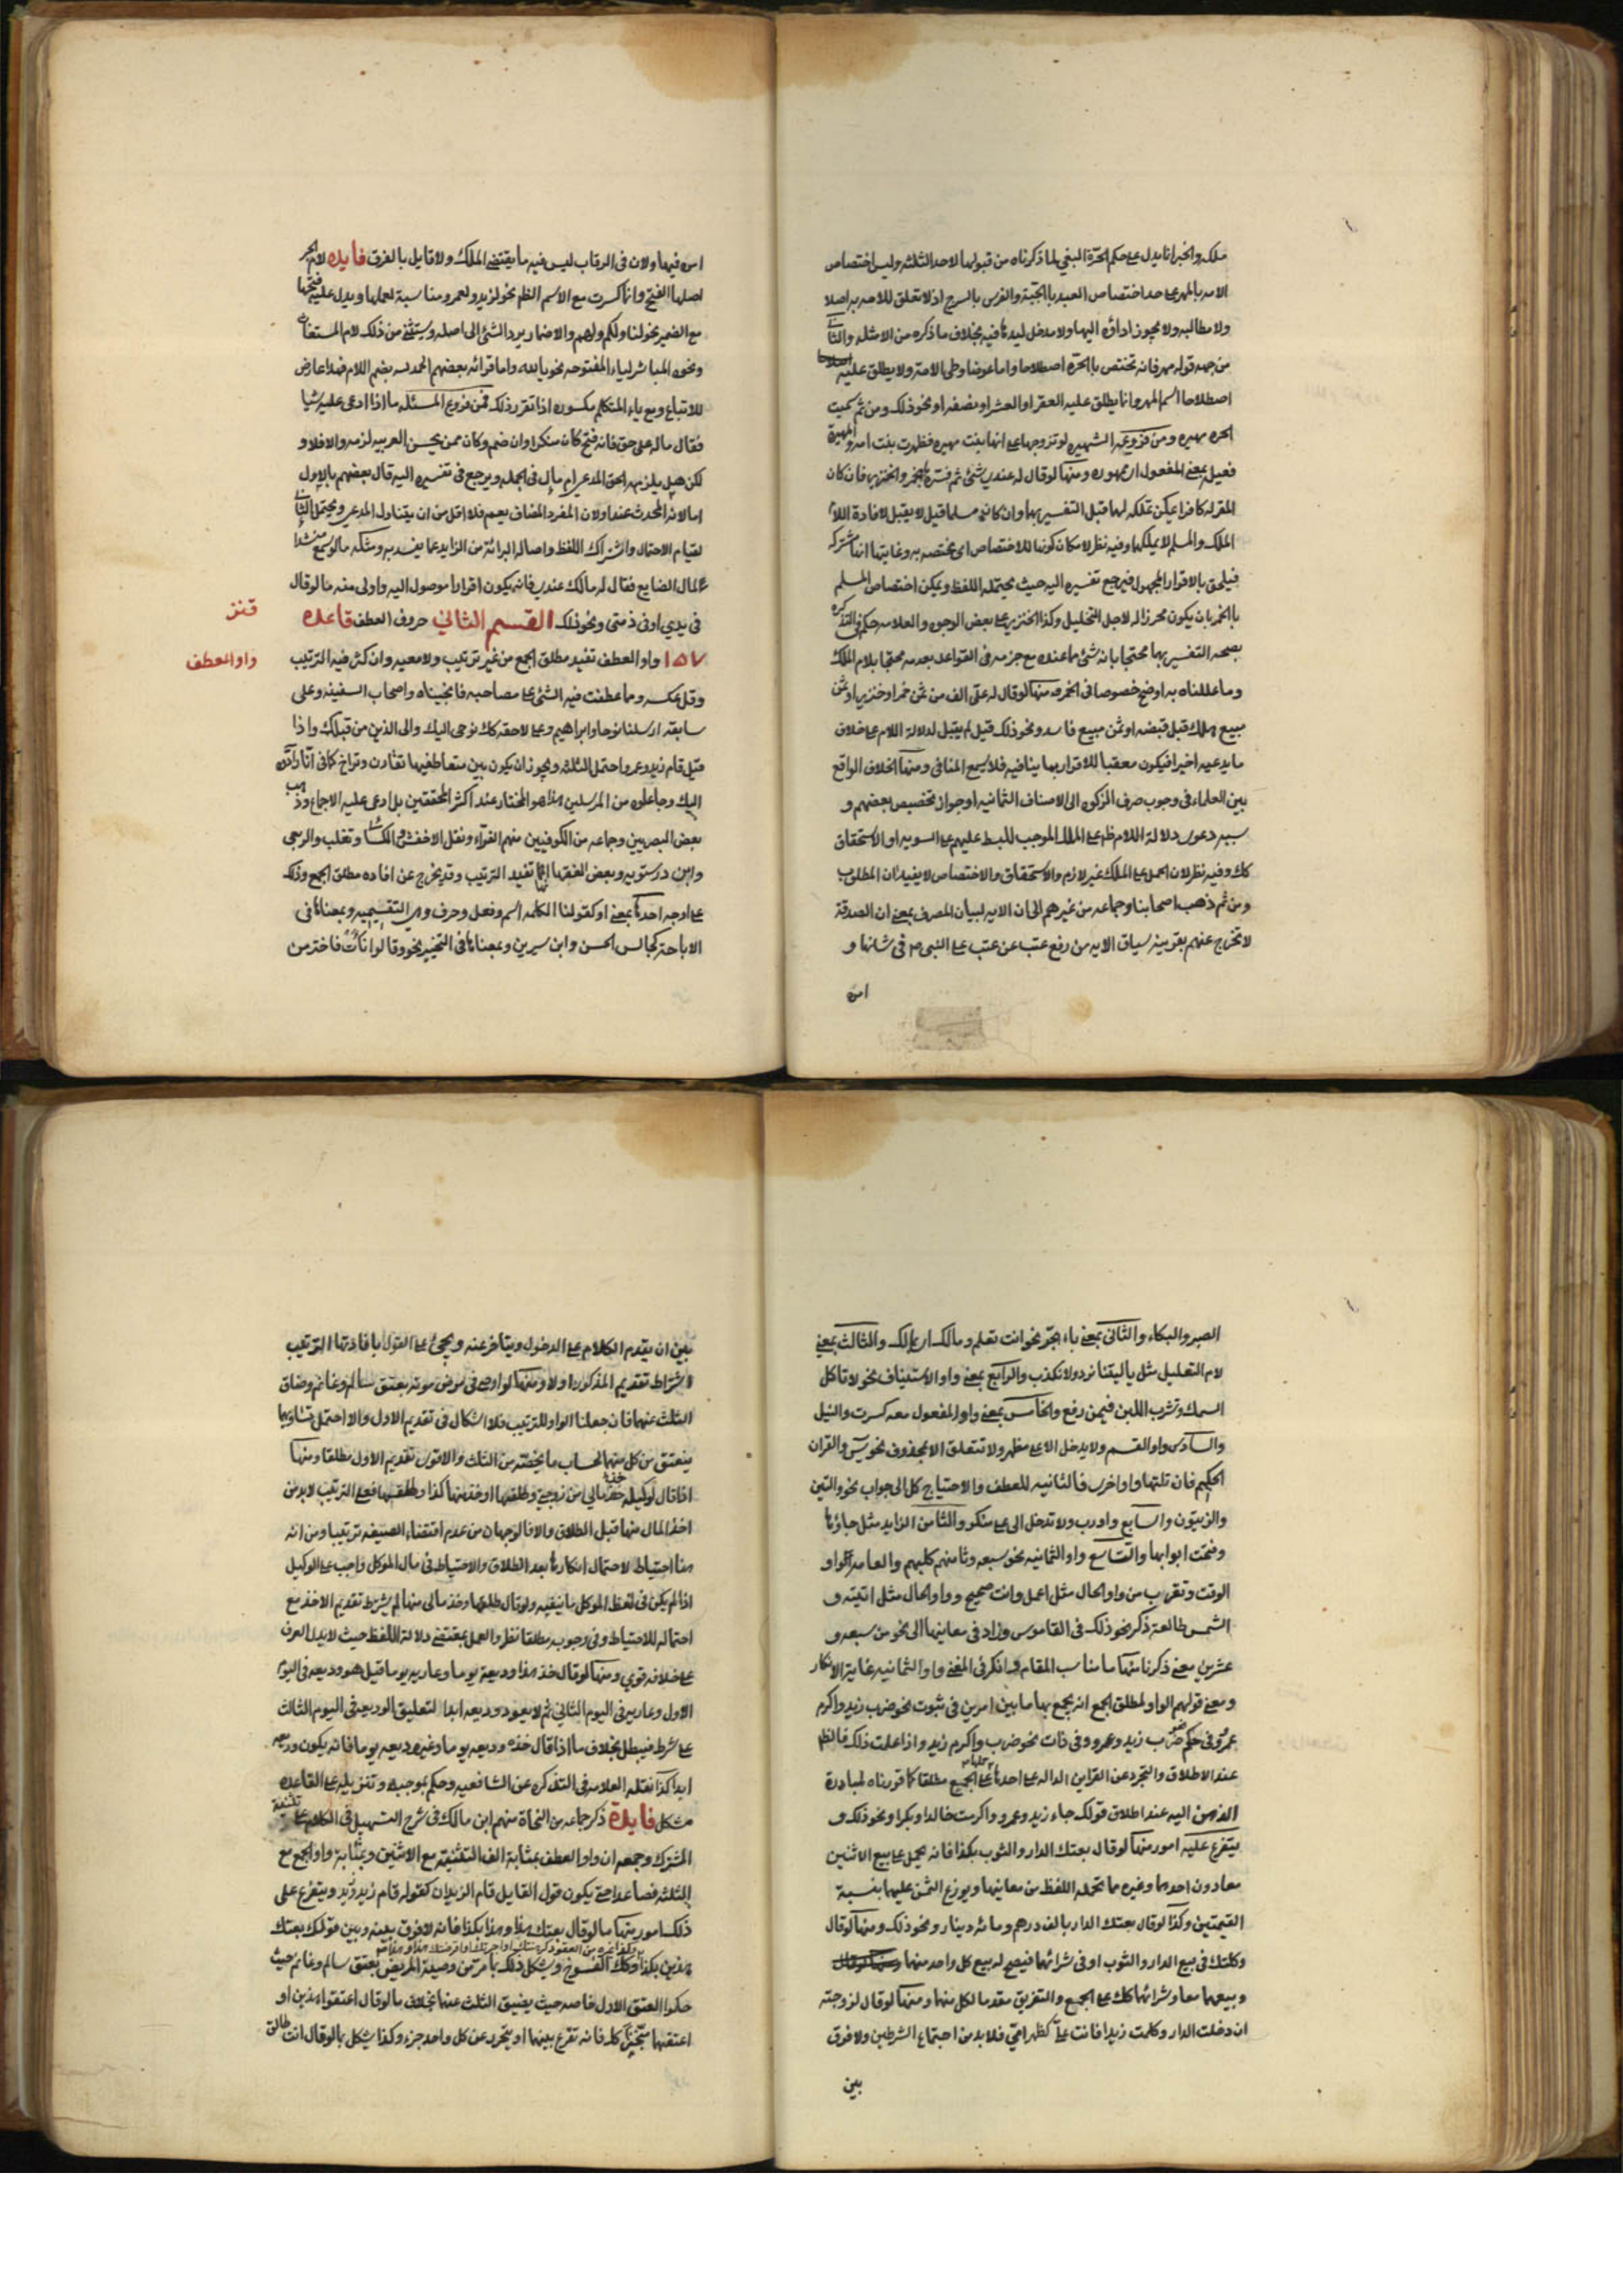 ملكه والخبر انما يدل على حكم الحرة البغي لما ذكرناه من قبولها لاحد الثلثه وليس اختصاص
الامه بالمهر على حد اختصاص العبد بالجبة والفرس بالسرج اذ لا تعلق للامه به اصلا
ولا مطالبه ولا يجوز اداؤه اليها ولا مدخل ليدها فيه بخلاف ما ذكره من الامثله والثاني
من جهه قوله مهر فانه تختص بالحره اصطلاحا واما عوضا وطى الامة ولا يطلق عليه
اصطلاحا اسم المهر وانما يطلق عليه العقر او العشر او نصفه او نحو ذلك ومن ثم سميت
الحره مهيره ومن فروعه الشهيره لو تزوجها على انها بنت مهيره فظهرت بنت امه والمهيرة
فعيل بمعنى المفعول اي ممهوره ومنها لو قال له عندي شئ ثم فسره بالخمر والخنزير فان كان
المقر له كافرا يمكن تملكه لهما قبل التفسير بهما وان كان مسلما قيل لا يقبل لافادة اللام
الملك والمسلم لا يملكهما وفيه نظر لامكان كونها للاختصاص اى مختصه به وغايتها انها مشتركه
فيلحق بالاقرار المجهول فيرجع تفسيره اليه حيث يحتمله اللفظ ويمكن اختصاص المسلم
بالخمر بان يكون محرزا له لاجل التخليل وكذا الخنزير على بعض الوجوه والعلامه حكم في التذكره
بصحه التفسير بهما محتجا بانه شئ مما عنده مع جزمه في القواعد بعدمه محتجا بلام الملك
وما عللناه به اوضح خصوصا في الخمر ومنها لو قال له علي الف من ثمن خمر او خنزير او ثمن
مبيع هلك قبل قبضه او ثمن مبيع فاسد ونحو ذلك قيل لم يقبل لدلالة اللام على خلاف
ما يدعيه اخيرا فيكون معقبا للاقرار بما ينافيه فلا يسمع المنافى ومنها الخلاف الواقع
بين العلماء في وجوب صرف الزكوه الى الاصناف الثمانيه او جواز تخصيص بعضهم و
سببه دعوى دلالة اللام ظم على الملك الموجب للبسط عليهم على السويه او الاستحقاق
كك وفيه نظر لان الحمل على الملك غير لازم والاستحقاق والاختصاص لا يفيدان المطلوب
ومن ثم ذهب اصحابنا وجماعه من غيرهم الى ان الايه لبيان المصرف بمعنى ان الصدقة
لا تخرج عنهم بقرينه سياق الايه من رفع عتب عن عتب على النبى ص فى شانها و
امره
امره فيها ولان في الرقاب ليس فيه ما يقتضي الملك ولا قايل بالفرق فايده لام الجر
اصلها الفتح وانما كسرت مع الاسم الظم نحو لزيد ولعمرو مناسبة لعملها ويدل عليه فتحها
مع الضمير نحو لنا ولكم ولهم والاضمار يرد الشئ الى اصله ويستثنى من ذلك لام المستغاث
ونحوه المباشر لياء المفتوحه نحو يا لله واما قرائه بعضهم الحمد لله بضم اللام فهذا عارض
للاتباع ومع ياء المتكلم مكسوره اذا تقرر ذلك فمن فروع المسئله ما اذا ادعى عليه شيا
فقال ماله على حق فانه فتح كان منكرا وان ضم وكان ممن يحسن العربيه لزمه والا فلا و
لكن هل يلزمه الحق المدعى ام مال في الجمله ويرجع في تفسيره اليه قال بعضهم بالاول
اما لانه المحدث عنه او لان المفرد المضاف يعم فلا اقل من ان يتناول المدعى ويحتمل الثاني
لقيام الاحتمال واشتراك اللفظ واصاله البرائة من الزايد عما يفسد به ومثله ما لو سمع منشدا
على المال الضايع فقال له مالك عندي فانه يكون اقرارا موصول اليه واولى منه ما لو قال
في يدي او في ذمتي ونحو ذلك القسم الثاني حروف العطف قاعده
قنز
١٥٧ واو العطف تفيد مطلق الجمع من غير ترتيب ولا معيه وان كثر فيه الترتيب
واو العطف
وقل عكسه وما عطفت فيه الشئ على مصاحبه فانجيناه واصحاب السفينه وعلى
سابقه ارسلنا نوحا وابراهيم وعلى لاحقه كك نوحى اليك والى الذين من قبلك واذا
قيل قام زيد وعمرو احتمل الثلثه ويجوز ان يكون بين متعاطفيها تقارن وتراخ كما في انا رادوه
اليك وجاعلوه من المرسلين هذا هو المختار عند اكثر المحققين بل ادعى عليه الاجماع وذهب
بعض البصريين وجماعه من الكوفيين منهم الفراء ونقل الاخفش والكسائي وثعلب والربعى
وابن درستويه وبعض الفقها انها تفيد الترتيب وقد يخرج عن افاده مطلق الجمع وذلك
على اوجه احدها بمعنى او كقولنا الكلمه اسم وفعل وحرف وهي التقسيميه وبمعناها فى
الاباحة كجالس الحسن وابن سيرين وبمعناها في التخيير نحو وقالوا نأت فاختر من
الصبر والبكاء والثانى بمعنى باء الجر نحو انت تعلم ومالك اي بمالك والثالث بمعنى
لام التعليل مثل يا ليتنا نرد ولا نكذب والرابع بمعنى واو الاستيناف نحو لا تاكل
السمك وتشرب اللبن فيمن رفع والخامس بمعنى واو المفعول معه كسرت والنيل
والسادس واو القسم ولا يدخل الا على مظهر ولا تتعلق الا بمحذوف نحو يس والقران
الحكيم فان تلتها واو اخرى فالثانيه للعطف والا احتياج كل الى جواب نحو والتين
والزيتون والسابع واو رب ولا تدخل الى على منكر والثامن الزايد مثل جاؤها
وفتحت ابوابها والتاسع واو الثمانيه نحو سبعه وثامنهم كلبهم والعاشر الواو
الوقت وتقرب من واو الحال مثل اعمل وانت صحيح وواو الحال مثل اتيته و
الشمس طالعة ذكر نحو ذلك فى القاموس وزاد في معانيها الى نحو من سبعه و
عشرين معنى ذكرنا منها ما مناسب المقام وانكر في المغني واو الثمانيه غاية الانكار
ومعنى قولهم الواو لمطلق الجمع انه يجمع بها ما بين امرين في ثبوت نحو ضرب زيد واكرم
عمرو وفي حكم ضرب زيد وعمرو وفي ذات نحو ضرب واكرم زيد واذا علمت ذلك فالظم
عند الاطلاق والتجرد عن القراين الداله على احدها حملها على الجمع مطلقا كما قررناه لمبادرة
الذهن اليه عند اطلاق قولك جاء زيد وعمرو واكرمت خالدا وبكرا ونحو ذلك و
يتفرع عليه امور منها لو قال بعتك الدار والثوب بكذا فانه يحمل على بيع الاثنين
معا دون احدهما وغيره مما تحمله اللفظ من معانيها ويوزع الثمن عليهما بنسبة
القيمتين وكذا لو قال بعتك الدار بالف درهم ومائه دينار ونحو ذلك ومنها لو قال
وكلتك في بيع الدار والثوب او في شرائهما فيصح له بيع كل واحد منهما
وبيعهما معا وشرائهما كك على الجمع والتفريق مقدما لكل منهما ومنها لو قال لزوجته
ان دخلت الدار وكلمت زيدا فانت علي كظهر امي فلابد من اجتماع الشرطين ولا فرق
بين
بين ان يتقدم الكلام على الدخول ويتاخر عنه ويجئ على القول بافادتها الترتيب
اشتراط تقديم المذكور اولا ومنها لو اوصى فى مرض موته بعتق سالم وغانم وضاق
الثلث عنهما فان جعلنا الواو للترتيب فلا اشكال في تقديم الاول والا احتمل تساويهما
ينعتق من كل منهما بحساب ما يخصه من الثلث والاقوى تقديم الاول مطلقا ومنها
اذا قال لوكيله خذ مالي من زوجتي وطلقها او خذ منها كذا وطلقها فعلى الترتيب لابد من
اخذ المال منها قبل الطلاق والا فالوجهان من عدم اقتضاء الصيغه ترتيبا ومن انه
هنا احتياط لاحتمال انكارها بعد الطلاق والاحتياط في مال الموكل واجب على الوكيل
اذا لم يكن في لفظ الموكل ما ينفيه ولو قال طلقها وخذ مالى منها لم يشرط تقديم الاخذ مع
احتماله للاحتياط وفي وجوبه مطلقا نظر والعمل بمقتضى دلالة اللفظ حيث لا يدل العرف
على خلافه قوي ومنها لو قال خذ هذا وديعة يوما وعاريه يوما قيل هو وديعه فى اليوم
الاول وعاريه في اليوم الثاني ثم لا يعود وديعه ابدا لتعليق الوديعه في اليوم الثالث
على شرط فيبطل بخلاف ما اذا قال خذه وديعه يوما وغير وديعه يوما فانه يكون وديعه
ابدا كذا نقله العلامه في التذكره عن الشافعيه وحكم بموجبه وتنزيله على القاعده
مشكل فايدة ذكر جماعه من النحاة منهم ابن مالك في شرح التسهيل في الكلام على تثنيه
المشترك وجمعه ان واو العطف بمثابة الف التثنية مع الاثنين وبمثابة واو الجمع مع
الثلثه فصاعدا حتى يكون قول القايل قام الزيدان كقوله قام زيد وزيد ويتفرع على
ذلك امور منها ما لو قال بعتك هذا وهذا بكذا فانه لا فرق بينه وبين قولك بعتك
هذين بكذا وكك الفسوخ ويشكل ذلك بما مر من وصية المريض بعتق سالم وغانم حيث
حكموا العتق الاول خاصه حيث يضيق الثلث عنهما بخلاف ما لو قال اعتقوا هذين او
اعتقهما فانه تقرع بينهما او يتحرر من كل واحد جزء وكذا يشكل بما لو قال انت طالق